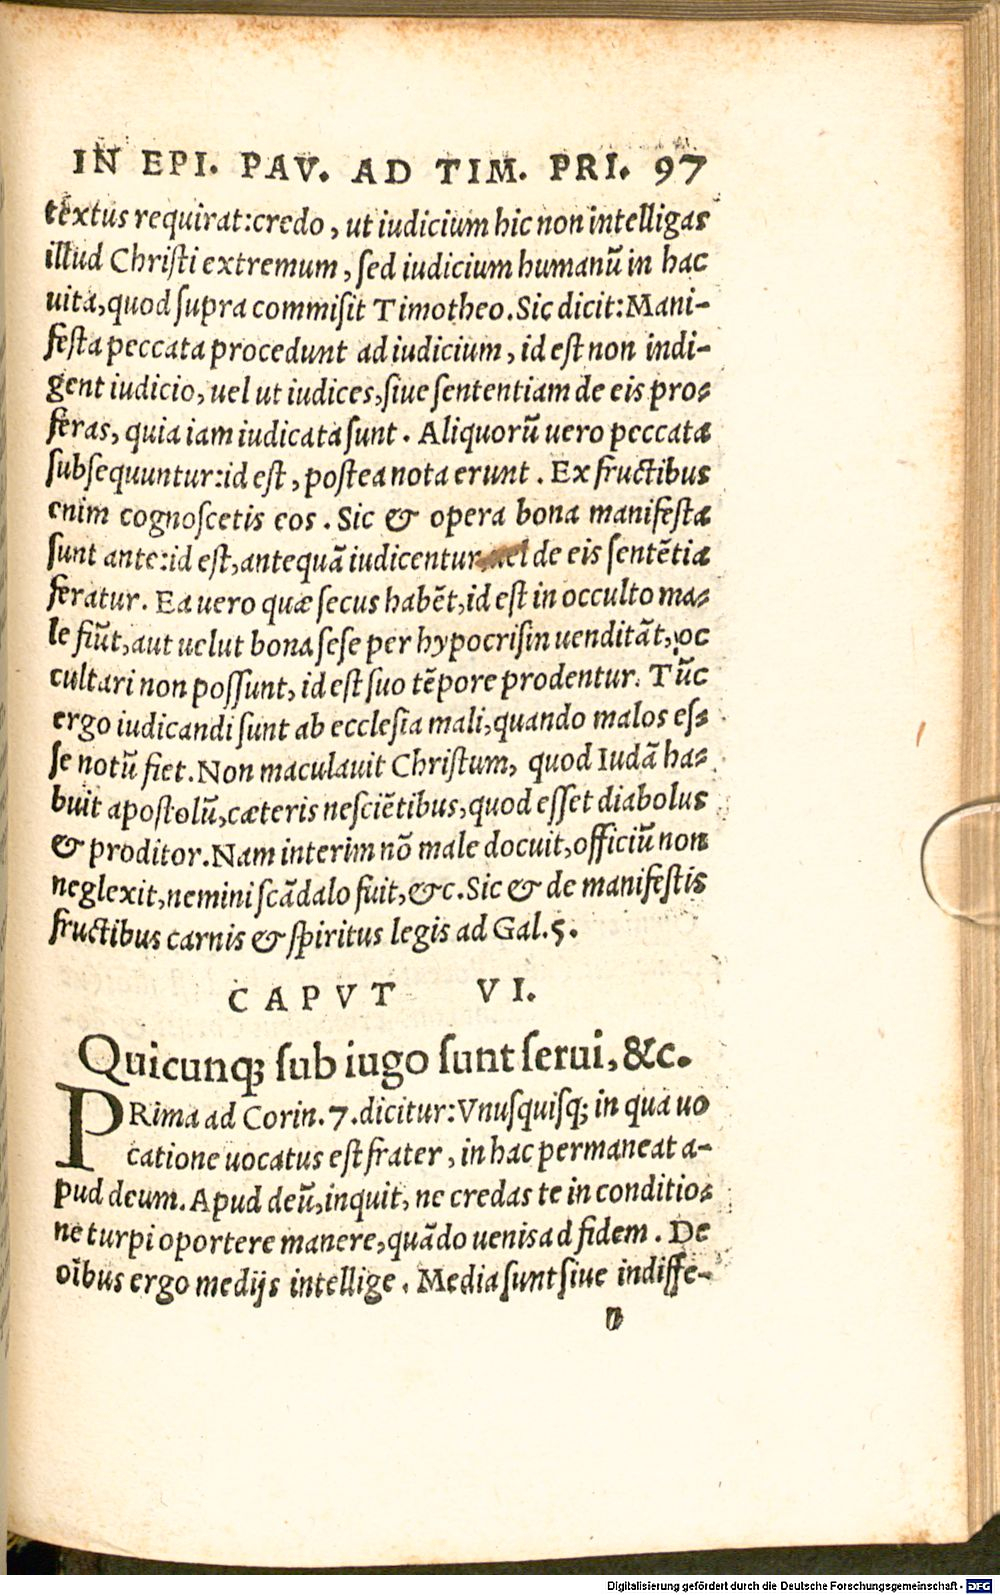 IN EPI. PAV. AD TIM. PRI. 97
textus requirat:credo, ut iudicium hic non intelligas
illud Chriſti extremum, ſed iudicium humanũ in hac
uita,quod ſupra commiſit Timotheo.Sic dicit:Mani-
feſta peccata procedunt ad iudicium, id eſt non indi-
gent iudicio, uel ut iudices,ſiue ſententiam de eis pro-
feras, quia iam iudicata ſunt. Aliquorũ uero peccata
ſubſequuntur:id eſt, poſtea nota erunt. Ex fructibus
enim cognoſcetis eos. Sic & opera bona manifeſta
ſunt ante:id eſt,antequã iudicentur uel de eis ſentẽtia
feratur. Ea uero quæ ſecus habẽt,id eſt in occulto ma-
le fiũt,aut uelut bona ſeſe per hypocriſin uenditãt, oc
cultari non poſſunt, id eſt ſuo tẽpore prodentur. Tũc
ergo iudicandi ſunt ab eccleſia mali,quando malos eſ-
ſe notũ fiet. Non maculauit Chriſtum, quod Iudã ha-
buit apoſtolũ,cæteris neſciẽtibus,quod eſſet diabolus
& proditor. Nam interim nõ male docuit,officiũ non
neglexit,nemini ſcãdalo fuit,&c. Sic & de manifeſtis
fructibus carnis & ſpiritus legis ad Gal.5.
CAPVT VI.
Quicunq; ſub iugo ſunt ſerui, &c.
PRima ad Corin.7.dicitur:Vnuſquiſq; in qua uo
catione uocatus eſt frater, in hac permaneat a-
pud deum. Apud deũ,inquit, ne credas te in conditio-
ne turpi oportere manere,quãdo uenis ad fidem. De
oĩbus ergo medijs intellige. Media ſunt ſiue indiffe-
Digitalisierung gefördert durch die Deutsche Forschungsgemeinschaft - DFG